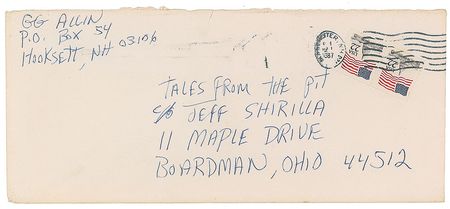 GG ALLIN
P.O. BOX 54
HOOKSETT, NH 03106
1987
22
22
TALES FROM THE PIT
c/o JEFF SHIRILLA
11 MAPLE DRIVE
BOARDMAN, OHIO 44512